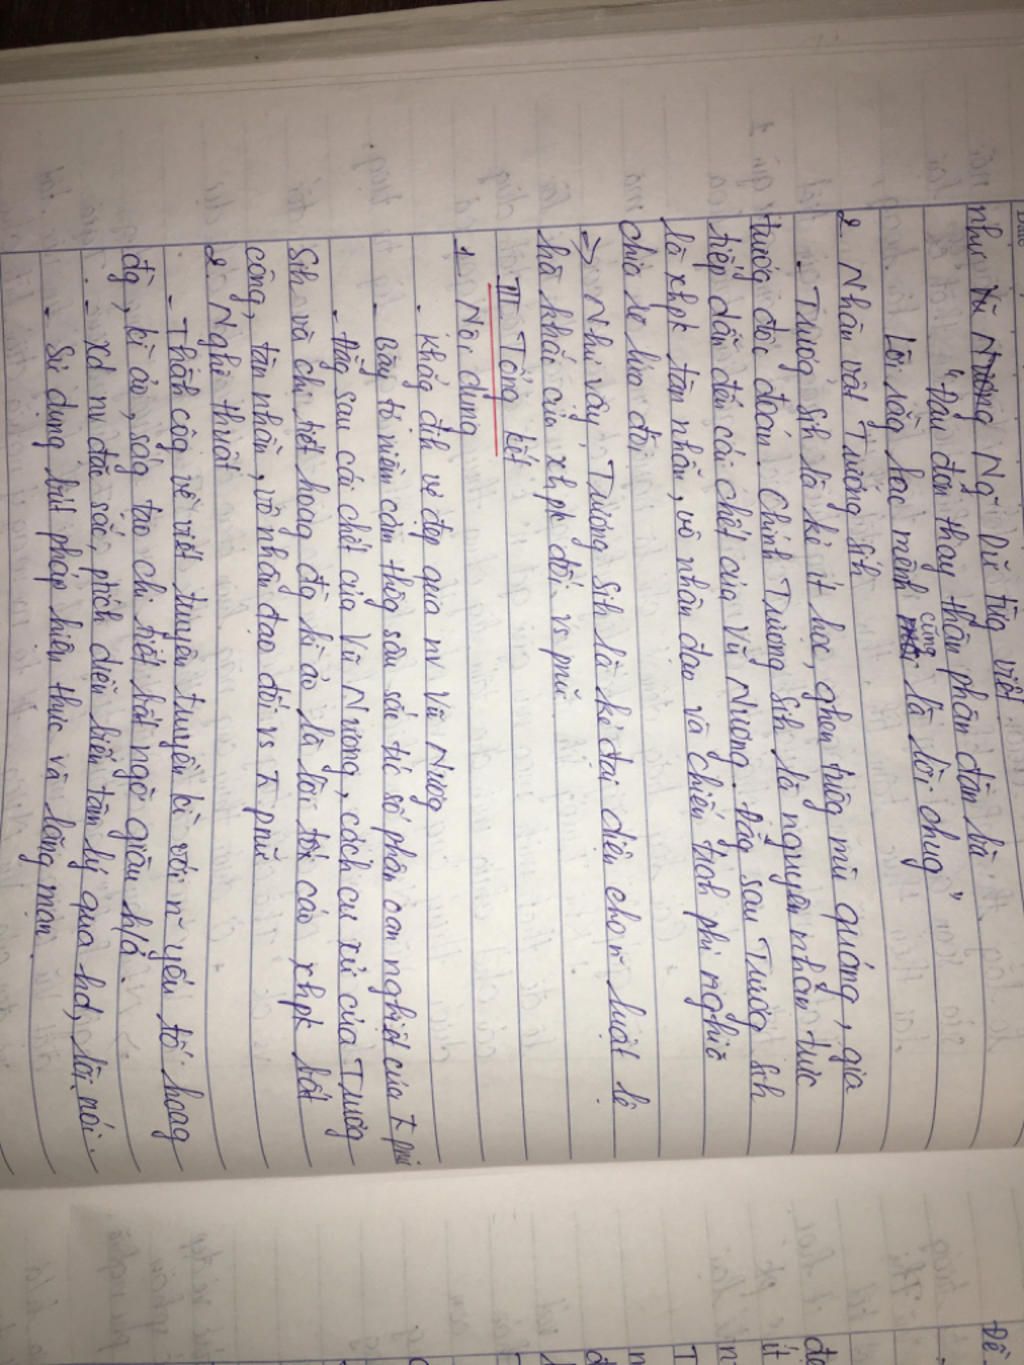 như Vũ Nương Ng~ Dữ từg viết
"Đau đớn thay thân phận đàn bà
Lời rằng bạc mệnh cũng là lời chug"
2. Nhân vật Trương Sih
- Trươg Sih là kẻ ít học, ghen tuôg mù quáng, gia
trưởg độc đoán. Chính Trương Sih là nguyên nhân trực
tiếp dẫn đến cái chết của Vũ Nương. Đằg sau Trươg Sih
là xhpk tàn nhẫn, vô nhân đạo và chiến trah phi nghĩa
chia lìa lứa đôi
=> Như vậy, Trương Sih là kẻ đại diện cho ~ luật lệ
hà khắc của xhpk đối vs pnữ
III. Tổng kết
1. Nội dung
- Khẳg địh vẻ đẹp qua nv Vũ Nươg
- Bày tỏ niềm cảm thôg sâu sắc trc số phận oan nghiệt của ng pnữ
- Đằg sau cái chết của Vũ Nương, cách cư xử của Trươg
Sih và chi tiết hoag đg kì ảo là lời tố cáo xhpk bất
công, tàn nhẫn, vô nhân đạo đối vs ng pnữ
2. Nghệ thuật
- Thàh côg về viết truyện truyền kì với ~ yếu tố hoag
đg, kì ảo, ság tạo chi tiết bất ngờ giàu h/ả.
- xd nv đặc sắc, ptích diễn biến tâm lý qua hđ, lời nói.
- Sử dụng bút pháp hiện thực và lãng mạn